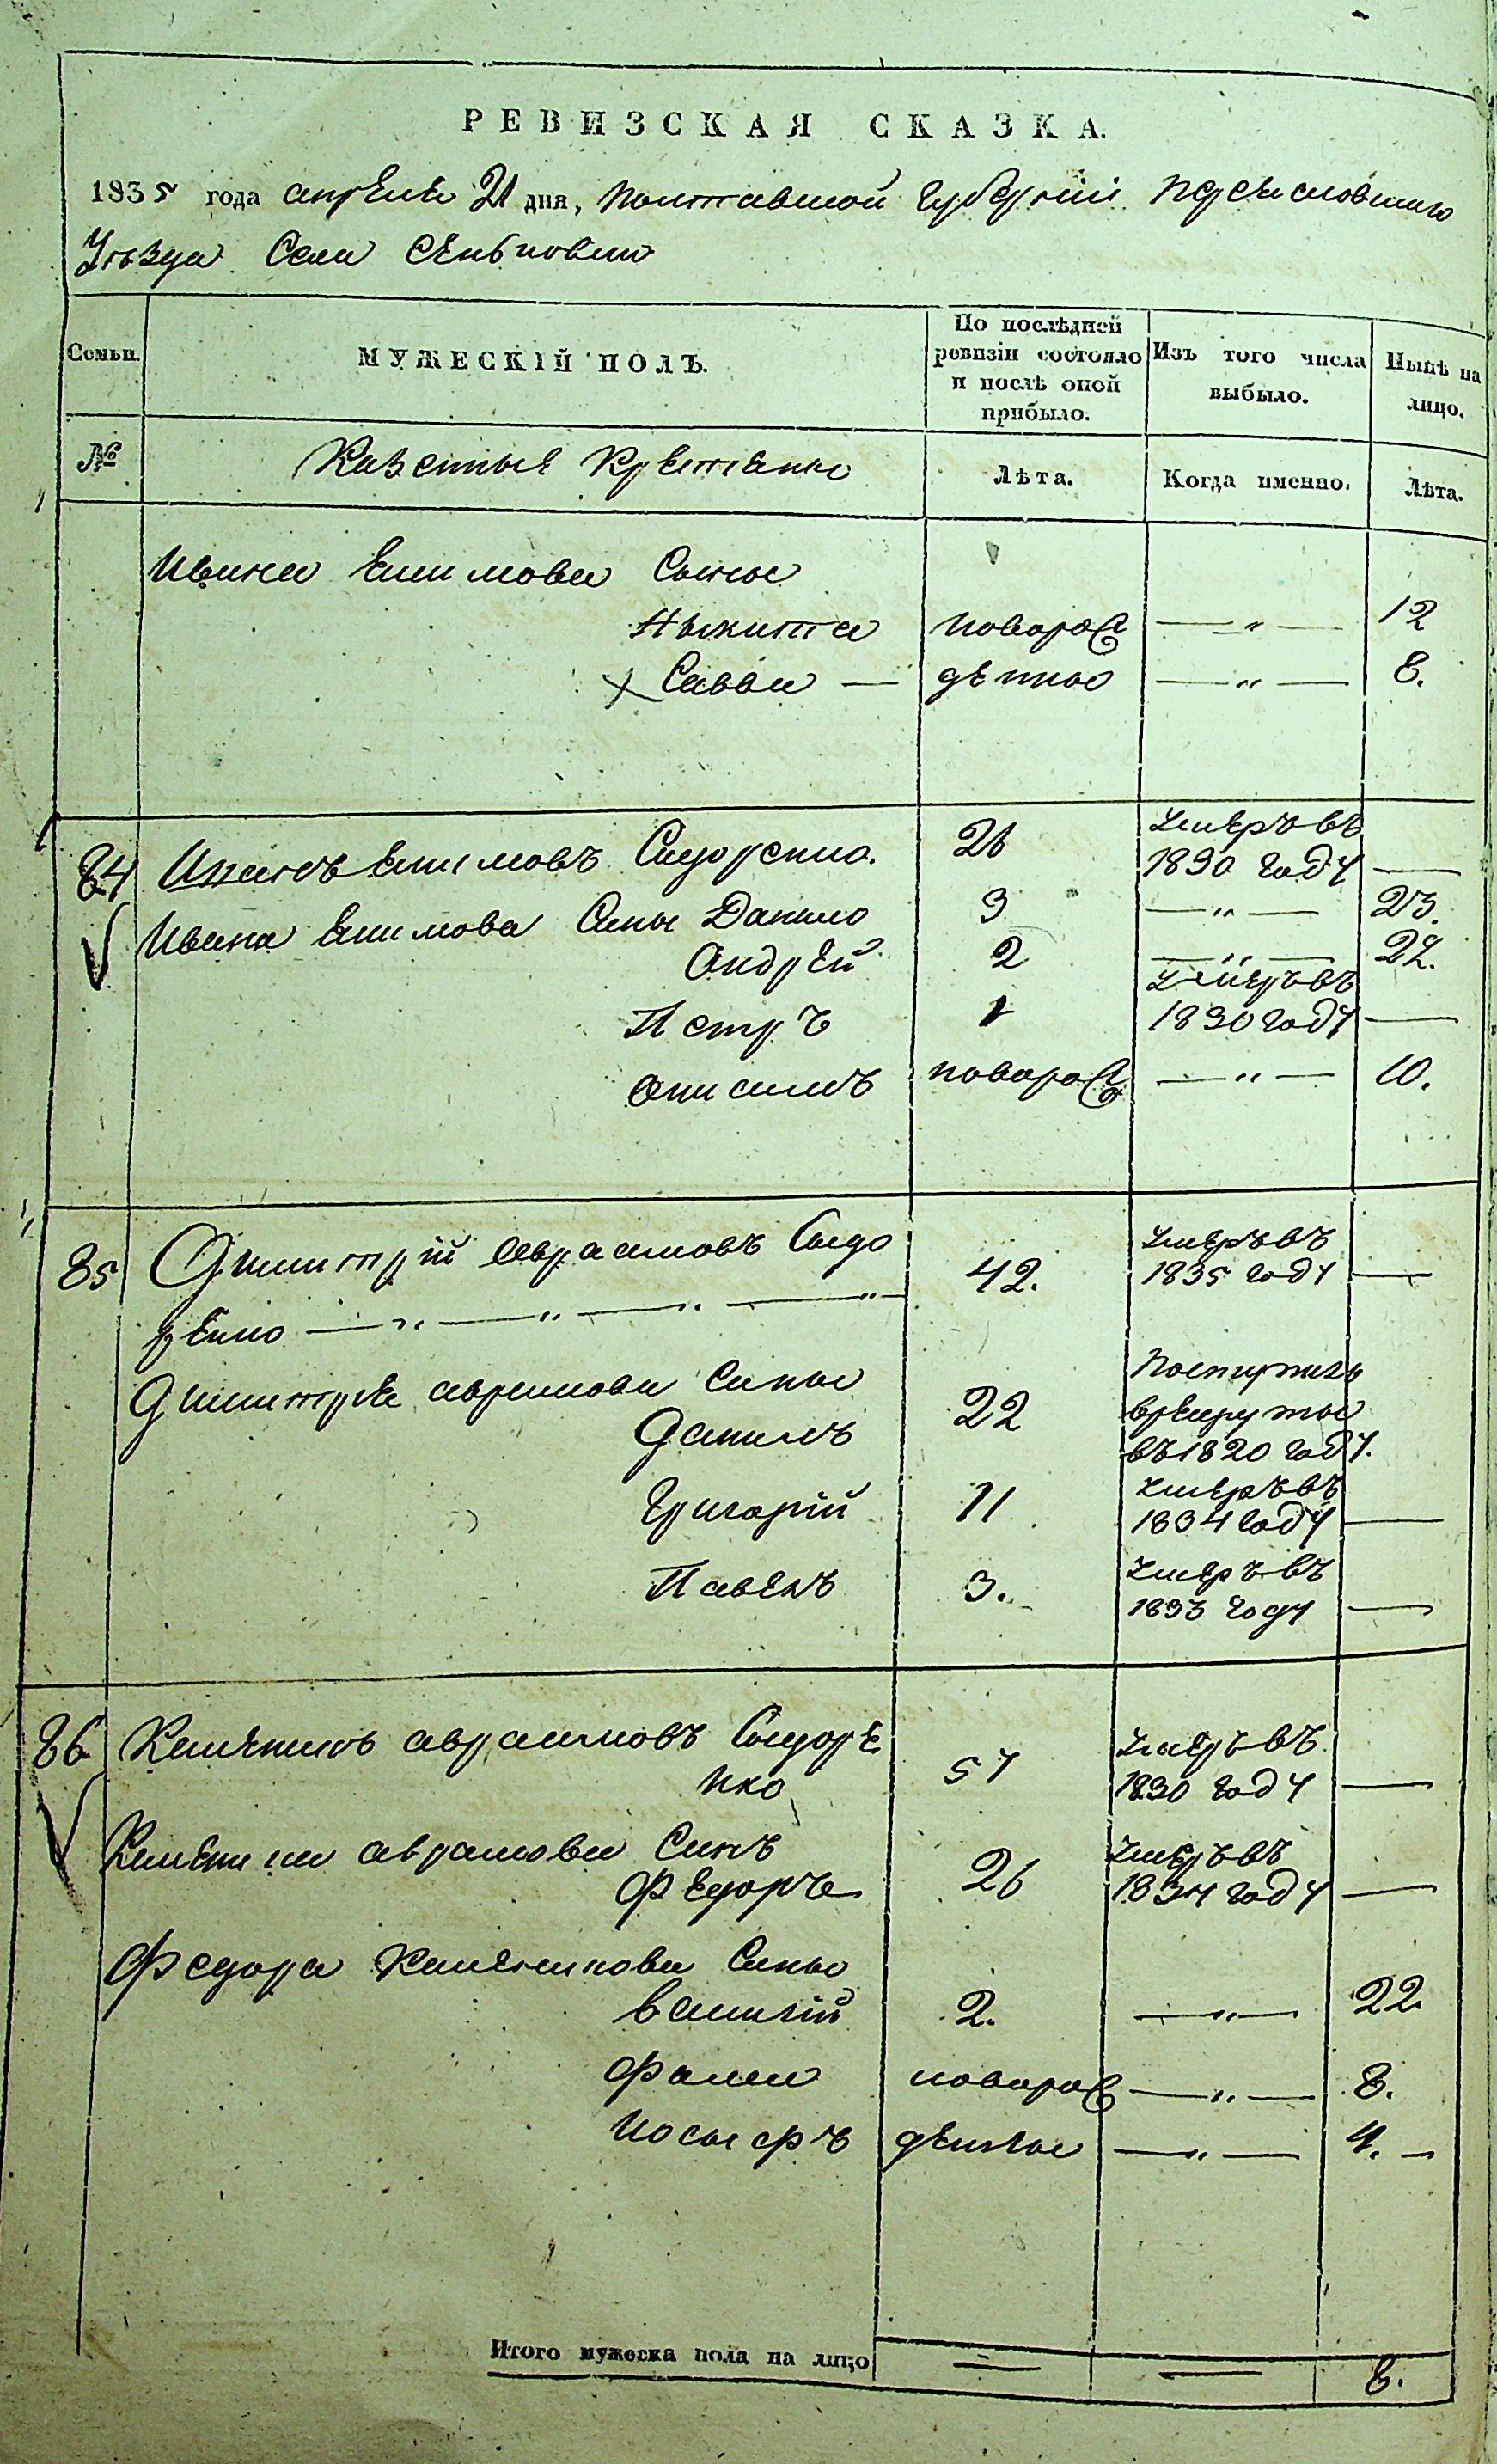 РЕВИЗСКАЯ СКАЗКА.
1835 года апреля 21 дня, Полтавской Губерніи Переяславского
Уѣзда Села Сеньковки
Семьи. МУЖЕСКІЙ ПОЛЪ. По послѣдней ревизіи состояло и послѣ оной прибыло. Изъ того числа выбыло. Нынѣ на лицо.
№ Казенные Крестяне Лѣта. Когда именно. Лѣта.
Ивана Екимова Сыны
Никита новорож 12
Савва — денные 8.
84 Иванъ Екимовъ Сидоренко. 26 Умеръ въ 1830 году —
Ивана Екимова Сины Данило 3 23.
Андрей 2 22.
Петръ 1 Умеръ въ 1830 году —
Онисимъ новорож 10.
85 Дмитрій Авраамовъ Сидо 42. Умеръ въ 1835 году —
ренко
Дмитрия аврамова Сины
Данилъ 22 Поступилъ в рекруты въ 1820 году.
Григорій 11 Умеръ въ 1834 году —
Павелъ 3. Умеръ въ 1833 году —
86 авраамовъ Сидоре 57 Умеръ въ 1830 году —
нко
аврамова Синъ
Федоръ 26 Умеръ въ 1834 году —
Федора Сины
Василій 2. 22.
Фома новорож 8.
Иосифъ денные 4. —
Итого мужеска пола на лицо 8.